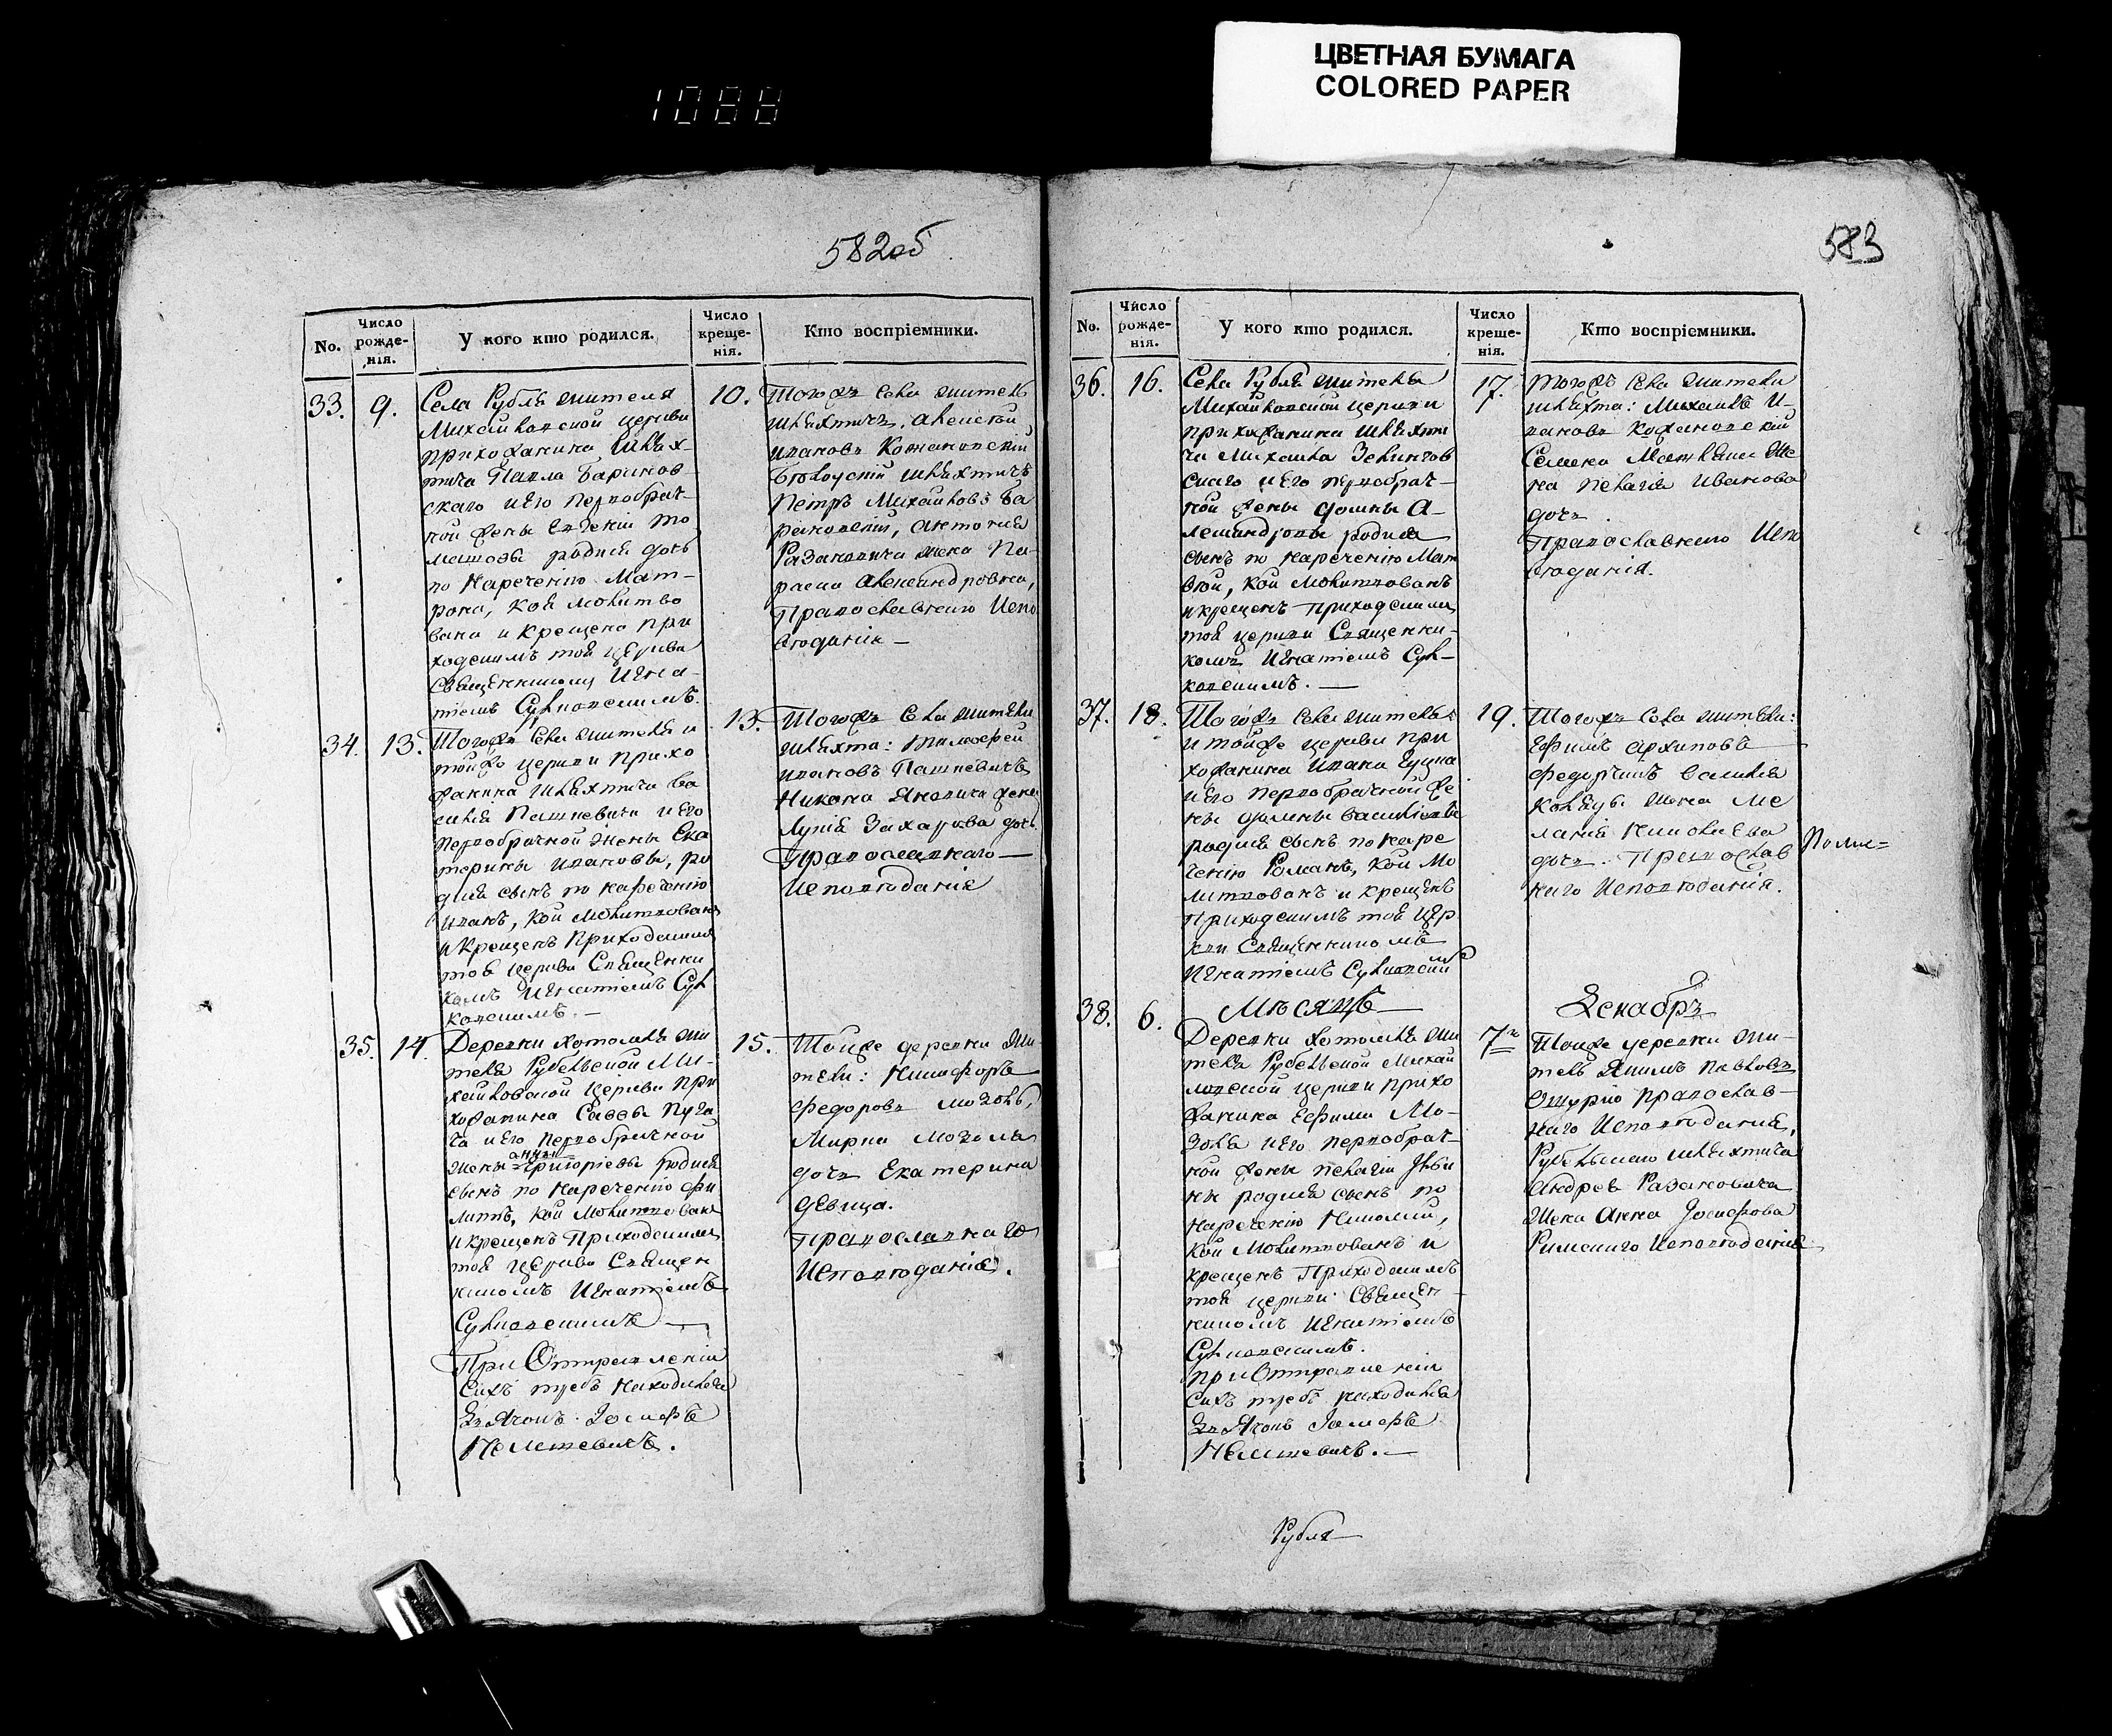 ЦВЕТНАЯ БУМАГА
COLORED PAPER
1088
582об
No.
Число рожде-нія.
У кого кто родился.
Число креще-нія.
Кто воспріемники.
33.
9.
Села Рубля жителя
Михайловской церкви
прихожанина шлях-
тича Павла Баранов-
скаго и его первобрач-
ной жены
родися дочь
по наречению Мат-
рона, коя молитво
вана и крещена при
ходскимъ тоя церкви
священникому Игна-
тіемъ Сулковскимъ.
10.
Тогожъ села жители
шляхтичъ Алексей
Ивановъ
шляхтичъ
Петръ Михайловъ Ба
рановский, Антония
жена Па-
раска Александровна,
Православнаго Испо
ведания —
34.
13.
Тогожъ села жителя и
тойже церкви прихо
жанина шляхтича Ва
силия Пашкевича и его
первобрачной жены Ека
терины Ивановы, ро
дися сынъ по наречению
Иванъ, кой молитвованъ
и крещенъ приходскимъ
тоя церкви священни
комъ Игнатіемъ Сул
ковскимъ. —
13.
Тогожъ села жители
шляхта: Тимофей
Ивановъ Пашкевичъ
Никона Яновича жена
Захарова дочь
Православнаго —
исповедания
35.
14.
Деревни Хотомля жи
теля Рубельской Ми-
хайловской церкви при
хожанина Саввы Пуга
ча и его первобрачной
анны
жены Григориевы родися
сынъ по наречению Фи
липъ, кой молитвованъ
и крещенъ приходскимъ
тоя церкви священ
никомъ Игнатіемъ
Сулковскимъ —
При Отправлении
сихъ требъ находился
Дьячокъ Іосифъ
15.
Тойже деревни жи-
тели: Никифоръ
Федоровъ Мозоль,
Марка Мозоля
дочь Екатерина
девица.
Православнаго
исповедания.
583
No.
Число рожде-нія.
У кого кто родился.
Число креще-нія.
Кто воспріемники.
36.
16.
Села Рубля жителя
Михайловской церкви
прихожанина шляхти
ча Михаила
скаго и его первобрач-
ной жены Домны А-
лександровы родися
сынъ по наречению Мат
вей, кой молитвованъ
и крещенъ приходскимъ
тоя церкви священни-
комъ Игнатіемъ Сул-
ковскимъ. —
17.
Тогожъ села жители
шляхта: Михаилъ И-
вановъ
Семена же
на Пелагия Иванова
дочь.
Православнаго испо
ведания.
37.
18.
Тогожъ села жителя
и тойже церкви при
хожанина Ивана
и его первобрачной же
ны
родися сынъ по наре
чению Романъ, кой мо
литвованъ и крещенъ
приходскимъ тоя цер
кви священникомъ
Игнатіемъ Сулковским
19.
Тогожъ села жители:
Ефимъ Архиповъ
Василия
жена Ме
лания
дочь. Православ
наго исповедания.
38.
6.
Мѣсяцъ —
Декабрь
Деревни Хотомля жи
теля Рубельской Михай
ловской церкви прихо
жанина Ефима Мо-
золя и его первобрач-
ной жены Пелагіи Ильи
ны родися сынъ по
наречению Николай,
кой молитвованъ и
крещенъ приходскимъ
тоя церкви священ-
никомъ Игнатіемъ
Сулковскимъ.
при Отправлении
сихъ требъ находился
Дьячокъ Іосифъ
7
Тойже деревни жи-
тель Якимъ Павловъ
православ-
наго исповедания,
Рубельскаго шляхтича
Андрея
жена Анна Іосифова
Римскаго исповедания
Рубля